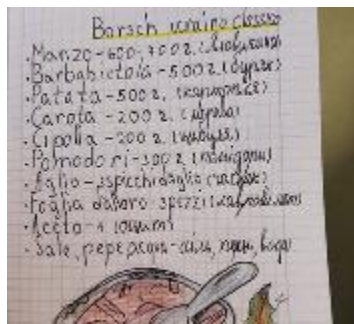 Borsch ucraino classico
• Manzo - 600-700 г. (яловичина)
• Barbabietola - 500 г. (буряк)
• Patata - 500 г. (картопля)
• Carota - 200 г. (морква)
• Cipolla - 200 г. (цибуля)
• Pomodori - 300 г. (помідори)
• Aglio - 3 spicchi d'aglio (часник)
• Foglia d'alloro 3 pezzi
• Aceto - 1
• Sale, pepe, - сіль, перець, вода